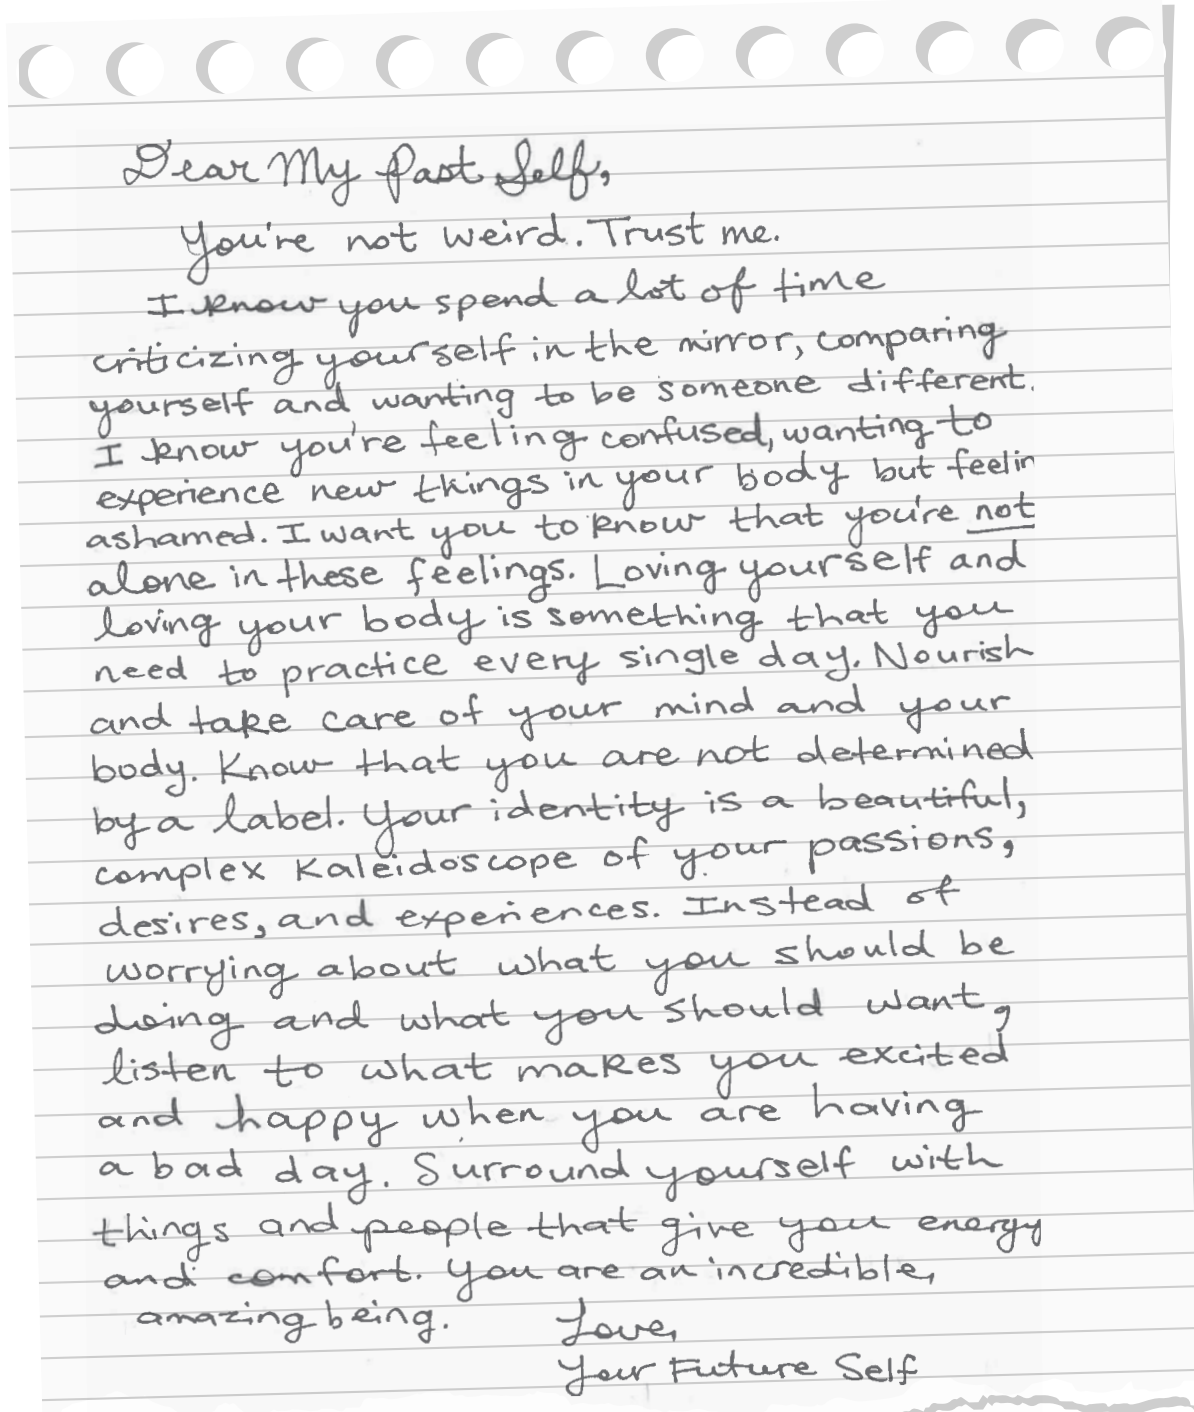 Dear My Past Self,
You're not weird. Trust me.
I know you spend a lot of time
criticizing yourself in the mirror, comparing
yourself and wanting to be someone different.
I know you're feeling confused, wanting to
experience new things in your body but feelin
ashamed. I want you to know that you're not
alone in these feelings. Loving yourself and
loving your body is something that you
need to practice every single day. Nourish
and take care of your mind and your
body. Know that you are not determined
by a label. Your identity is a beautiful,
complex Kaleidoscope of your passions,
desires, and experiences. Instead of
worrying about what you should be
doing and what you should want,
listen to what makes you excited
and happy when you are having
a bad day. Surround yourself with
things and people that give you energy
and comfort. You are an incredible,
amazing being.
Love,
Your Future Self